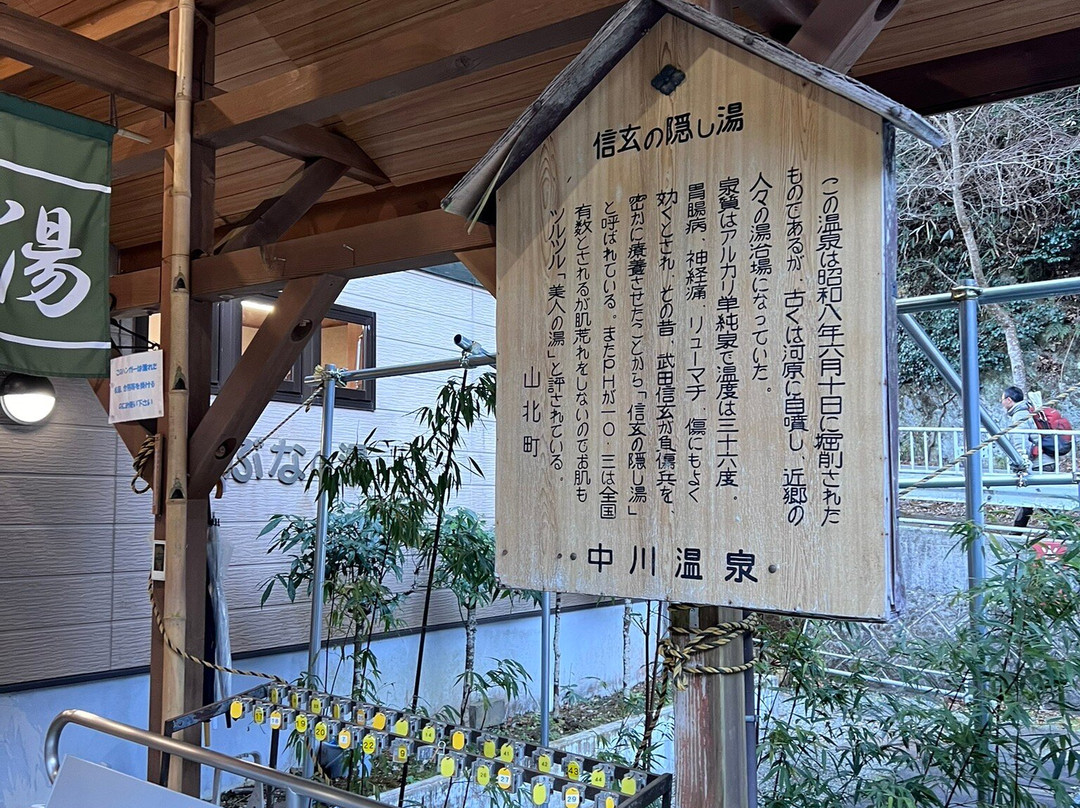 信玄の隠し湯
この温泉は昭和八年六月十日に堀削された
ものであるが、古くは河原に自噴し、近郷の
人々の湯治場になっていた。
家質はアルカリ単純家で温度は三十六度.
胃腸病、神経痛、リューマチ、傷にもよく
効くとされ、その昔、武田信玄が負傷兵を、
密かに療養させたことから「信玄の隠し湯」
と呼ばれている。またpHが一〇.三は全国
有数とされるが肌荒れをしないのでお肌も
ツルツル「美人の湯」と評されている。
山北町
中川温泉
湯
ぶな